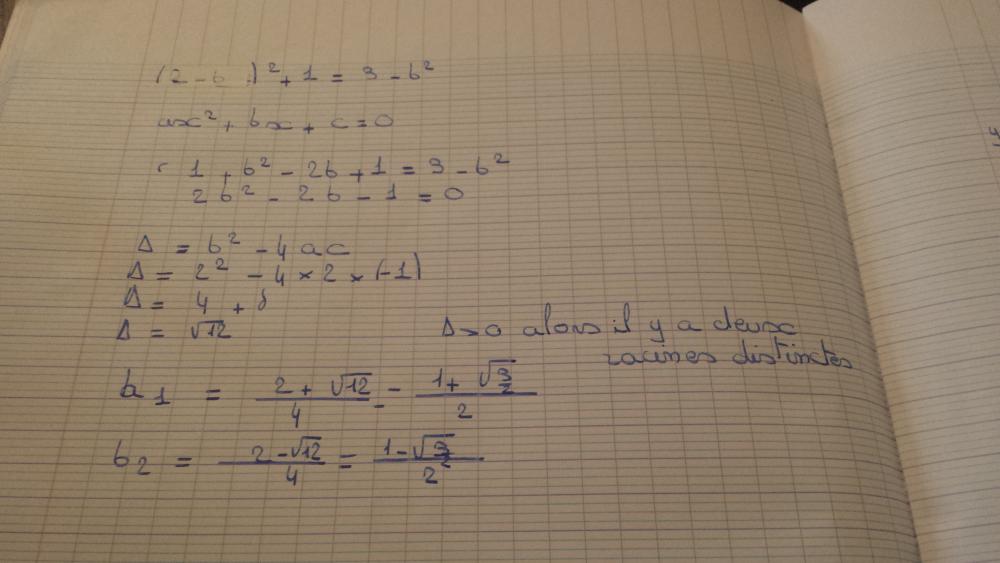 (2 - b )² + 1 = 3 - b²
ax² + bx + c = 0
( 1 + b² - 2b + 1 = 3 - b²
2b² - 2b - 1 = 0
Δ = b² - 4ac
Δ = 2² - 4 × 2 × (-1)
Δ = 4 + 8
Δ = √12 Δ>0 alors il y a deux
racines distinctes
b₁ = (2 + √12)/4 = (1 + √3)/2
b₂ = (2 - √12)/4 = (1 - √3)/2